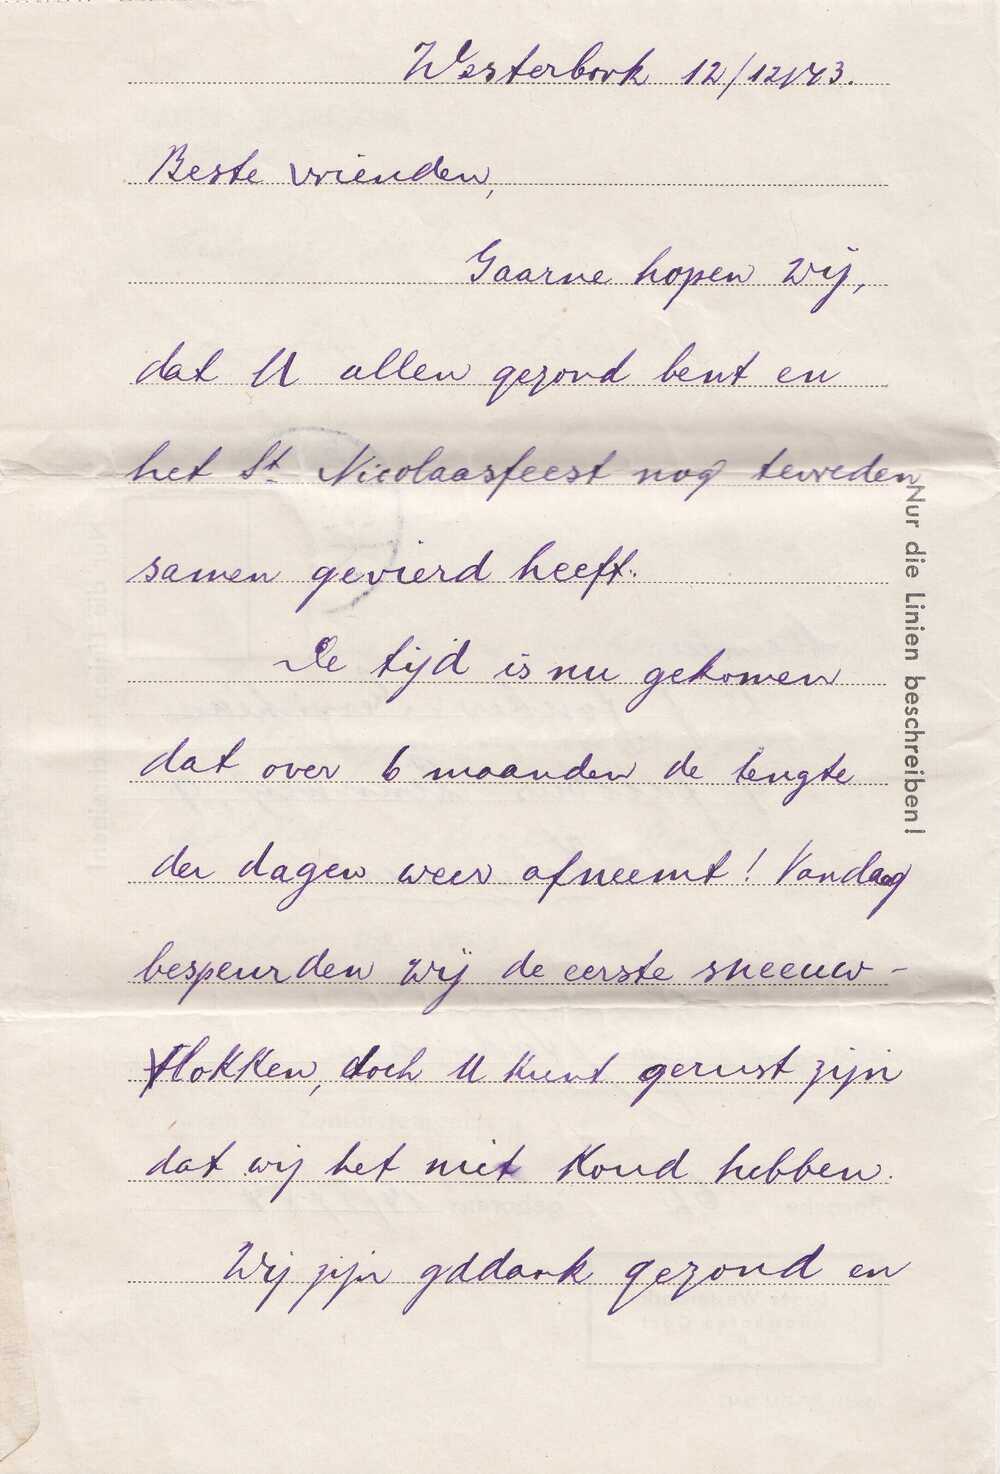 Westerbork 12/12/43.
Beste vrienden,
Gaarne hopen wij,
dat U allen gezond bent en
het St. Nicolaasfeest nog tevreden
samen gevierd heeft.
De tijd is nu gekomen
dat over 6 maanden de lengte
der dagen weer afneemt! Vandaag
bespeurden wij de eerste sneeuw-
vlokken, doch U kunt gerust zijn
dat wij het niet koud hebben.
Wij zijn gddank gezond en
Nur die Linien beschreiben!